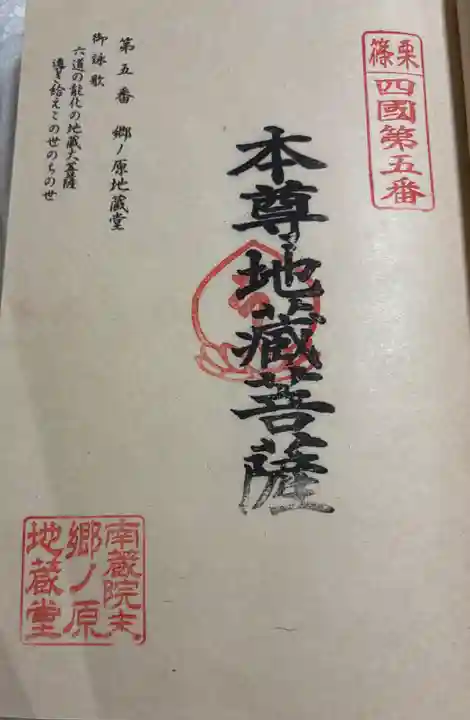 篠栗
四國第五番
本尊地蔵菩薩
第五番 郷ノ原地蔵堂
御詠歌
六道の能化の地蔵大菩薩
導き給えこの世のちの世
南蔵院末
郷ノ原
地蔵堂